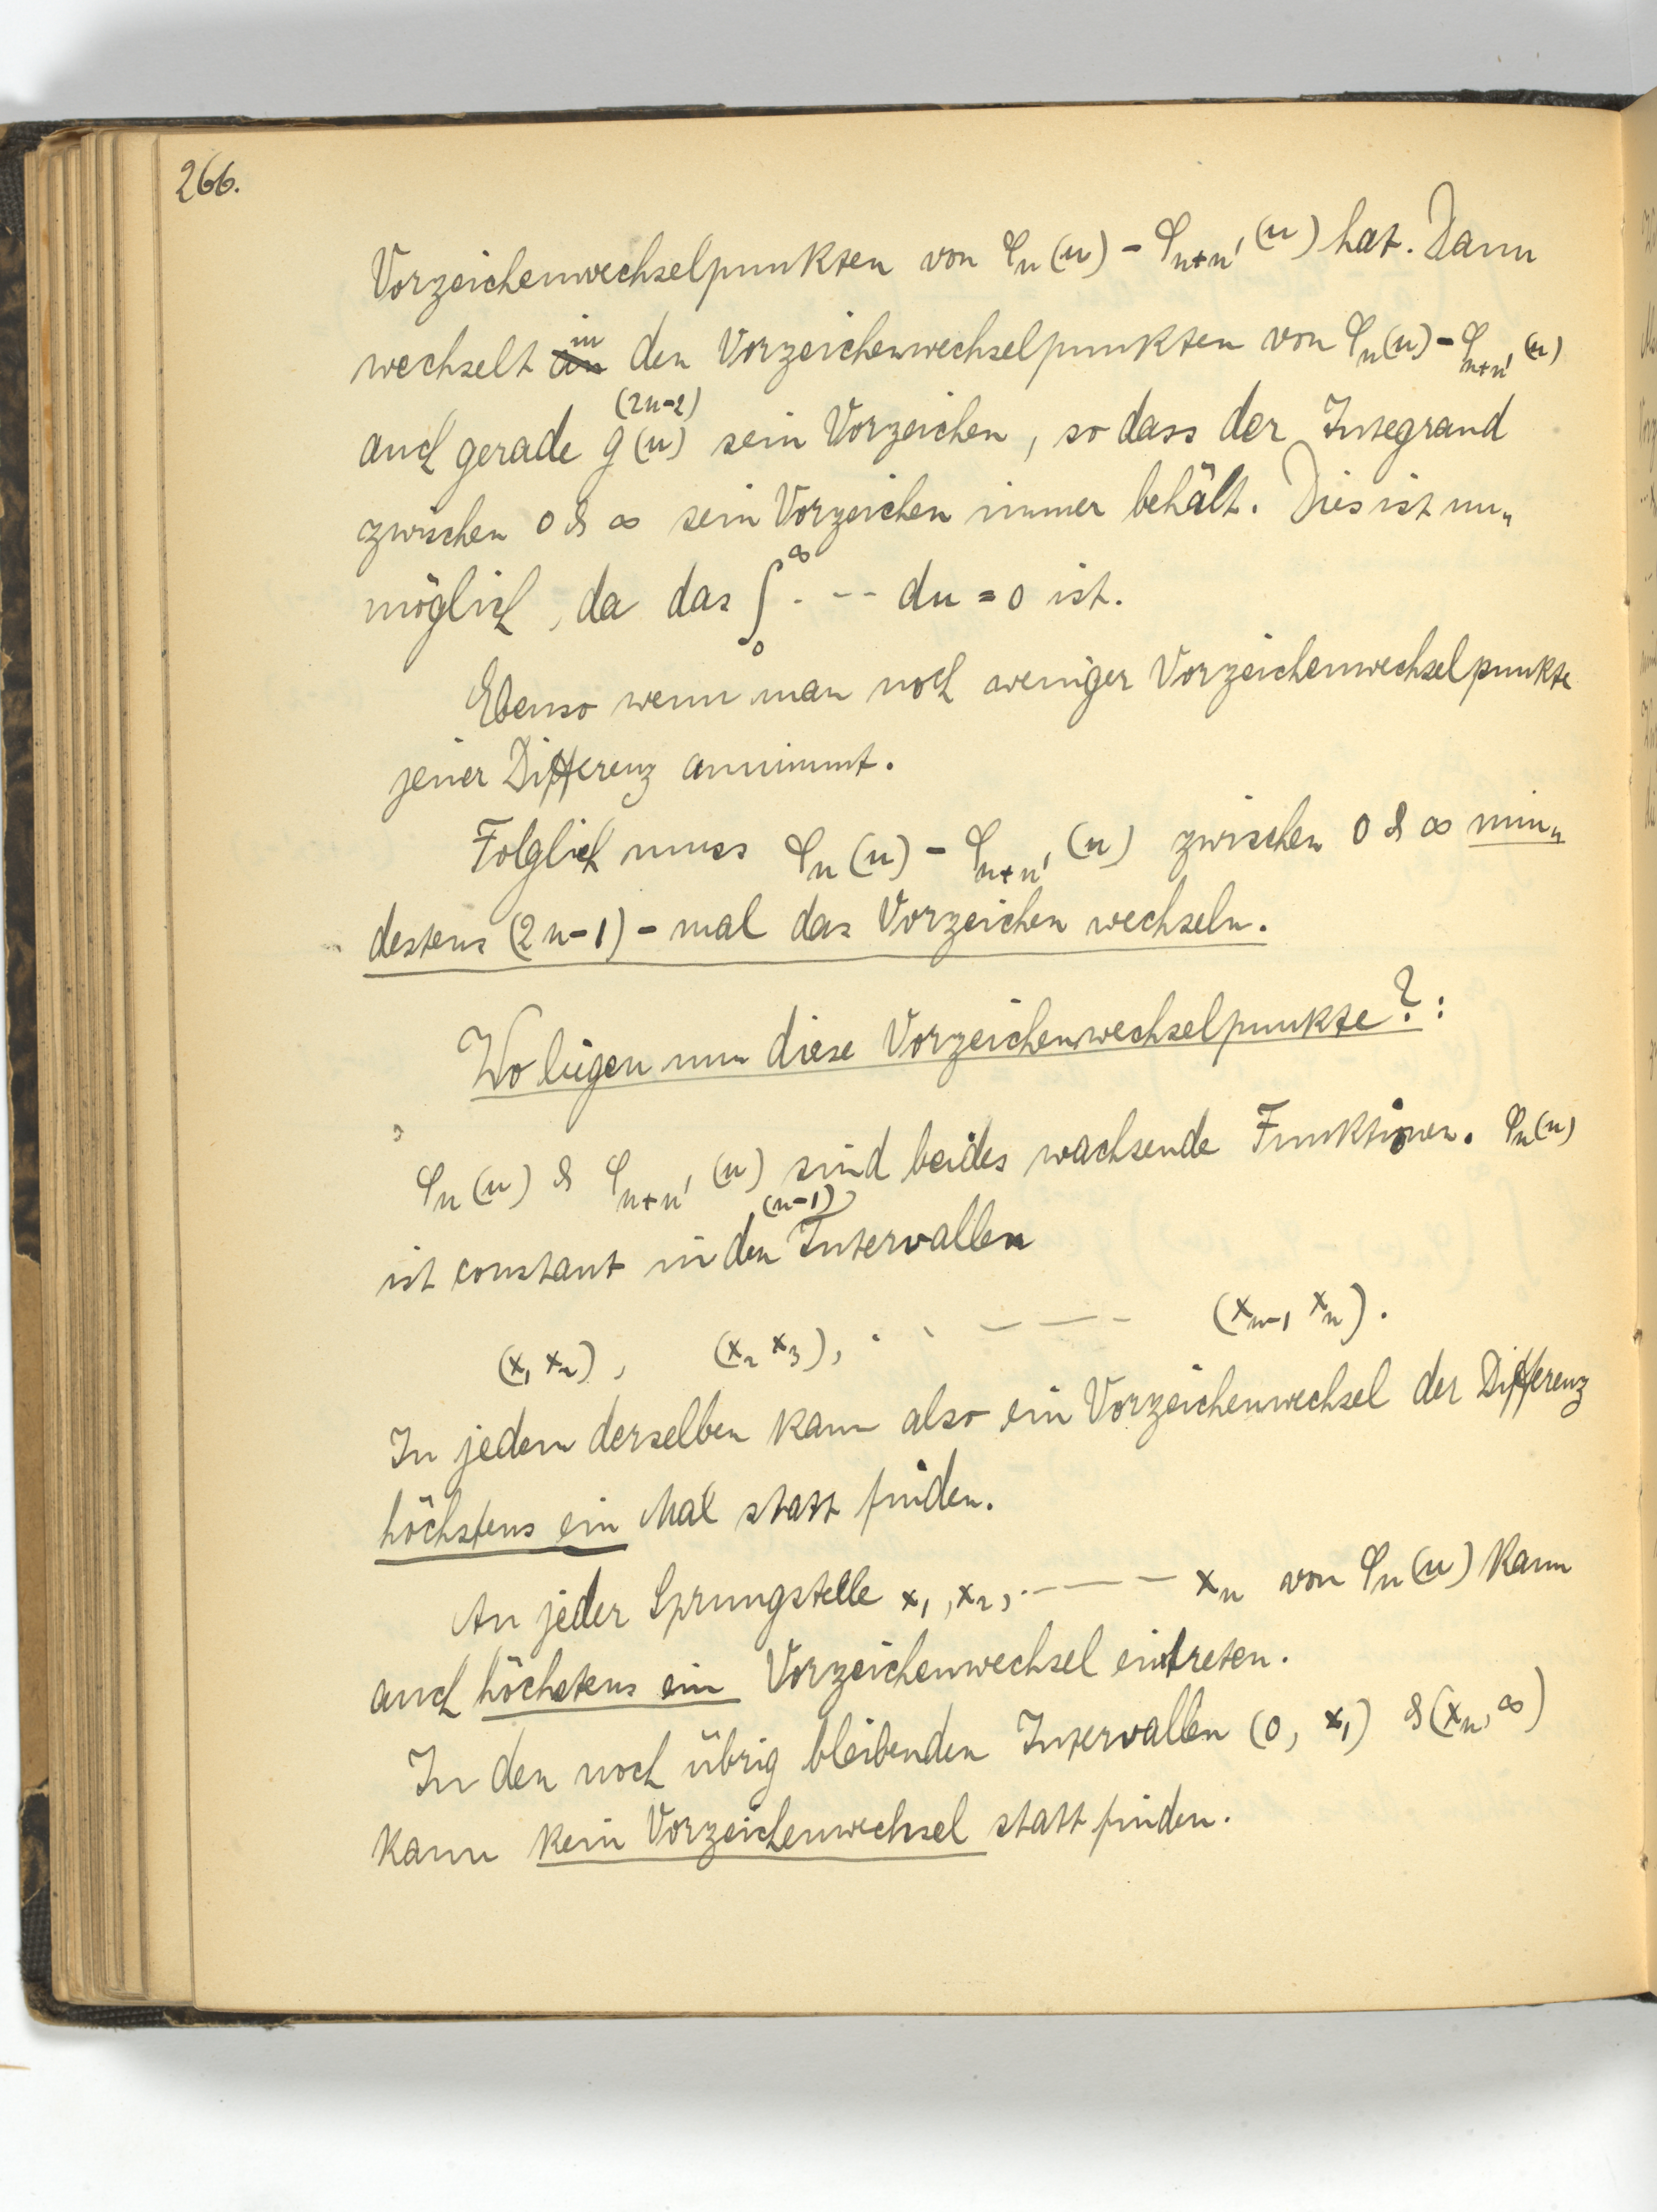 266.
Vorzeichenwechselpunkten von φₙ(u) - φₙ₊ₙ′(u) hat. Dann
wechselt in den Vorzeichenwechselpunkten von φₙ(u) - φₙ₊ₙ′(u)
(2n-2)
auch gerade g(u) sein Vorzeichen, so dass der Integrand
zwischen 0 & ∞ sein Vorzeichen immer behält. Dies ist un„
möglich, da das ∫₀^∞ . -- du = 0 ist.
Ebenso wenn man noch weniger Vorzeichenwechselpunkte
jener Differenz annimmt.
Folglich muss φₙ(u) - φₙ₊ₙ′(u) zwischen 0 & ∞ min„
destens (2n-1) - mal das Vorzeichen wechseln.
Wo liegen nun diese Vorzeichenwechselpunkte?:
φₙ(u) & φₙ₊ₙ′(u) sind beides wachsende Funktionen. φₙ(u)
(n-1)
ist constant in den Intervallen
(x₁ x₂), (x₂ x₃), . . — — - (xₙ₋₁ xₙ).
In jedem derselben kann also ein Vorzeichenwechsel der Differenz
höchstens ein Mal statt finden.
An jeder Sprungstelle x₁, x₂, . — — — xₙ von φₙ(u) kann
auch höchstens ein Vorzeichenwechsel eintreten.
In den noch übrig bleibenden Intervallen (0, x₁) & (xₙ, ∞)
kann kein Vorzeichenwechsel statt finden.